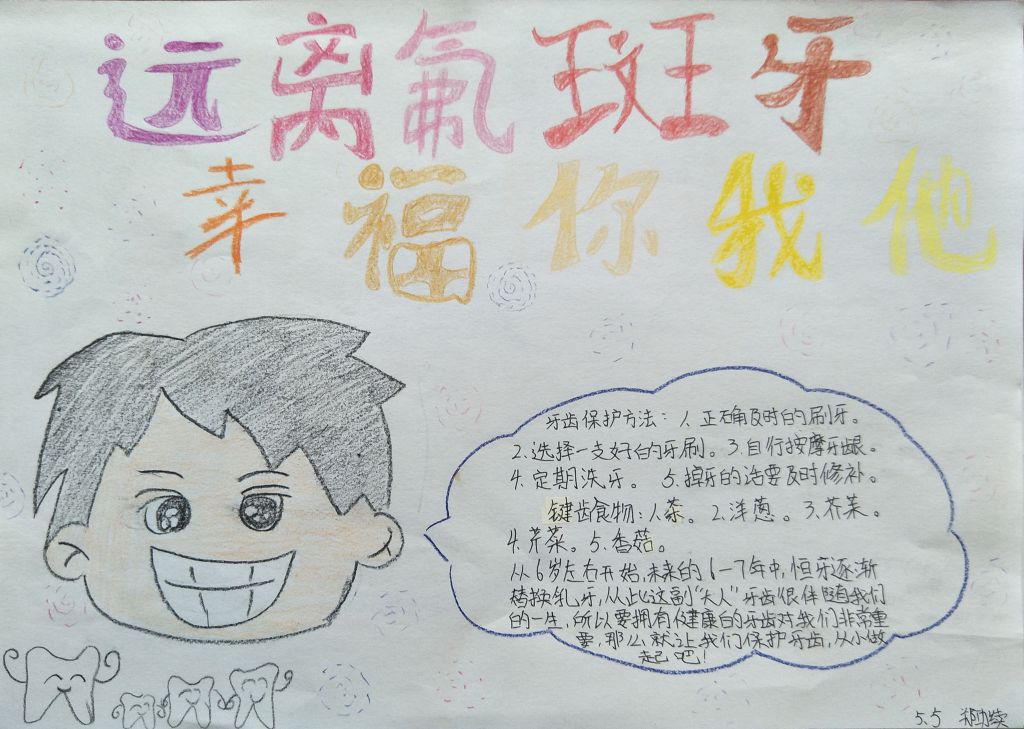 远离氟斑牙
幸福你我他
牙齿保护方法：1.正确及时的刷牙。
2.选择一支好的牙刷。3.自行按摩牙龈。
4.定期洗牙。5.掉牙的话要及时修补。
键齿食物：1.茶。2.洋葱。3.芥菜。
4.芹菜。5.香菇。
从6岁左右开始，未来的6-7年中，恒牙逐渐
替换乳牙，从此这副“大人”牙齿很伴随我们
的一生，所以要拥有健康的牙齿对我们非常重
要，那么就让我们保护牙齿，从小做
起吧！
5.5